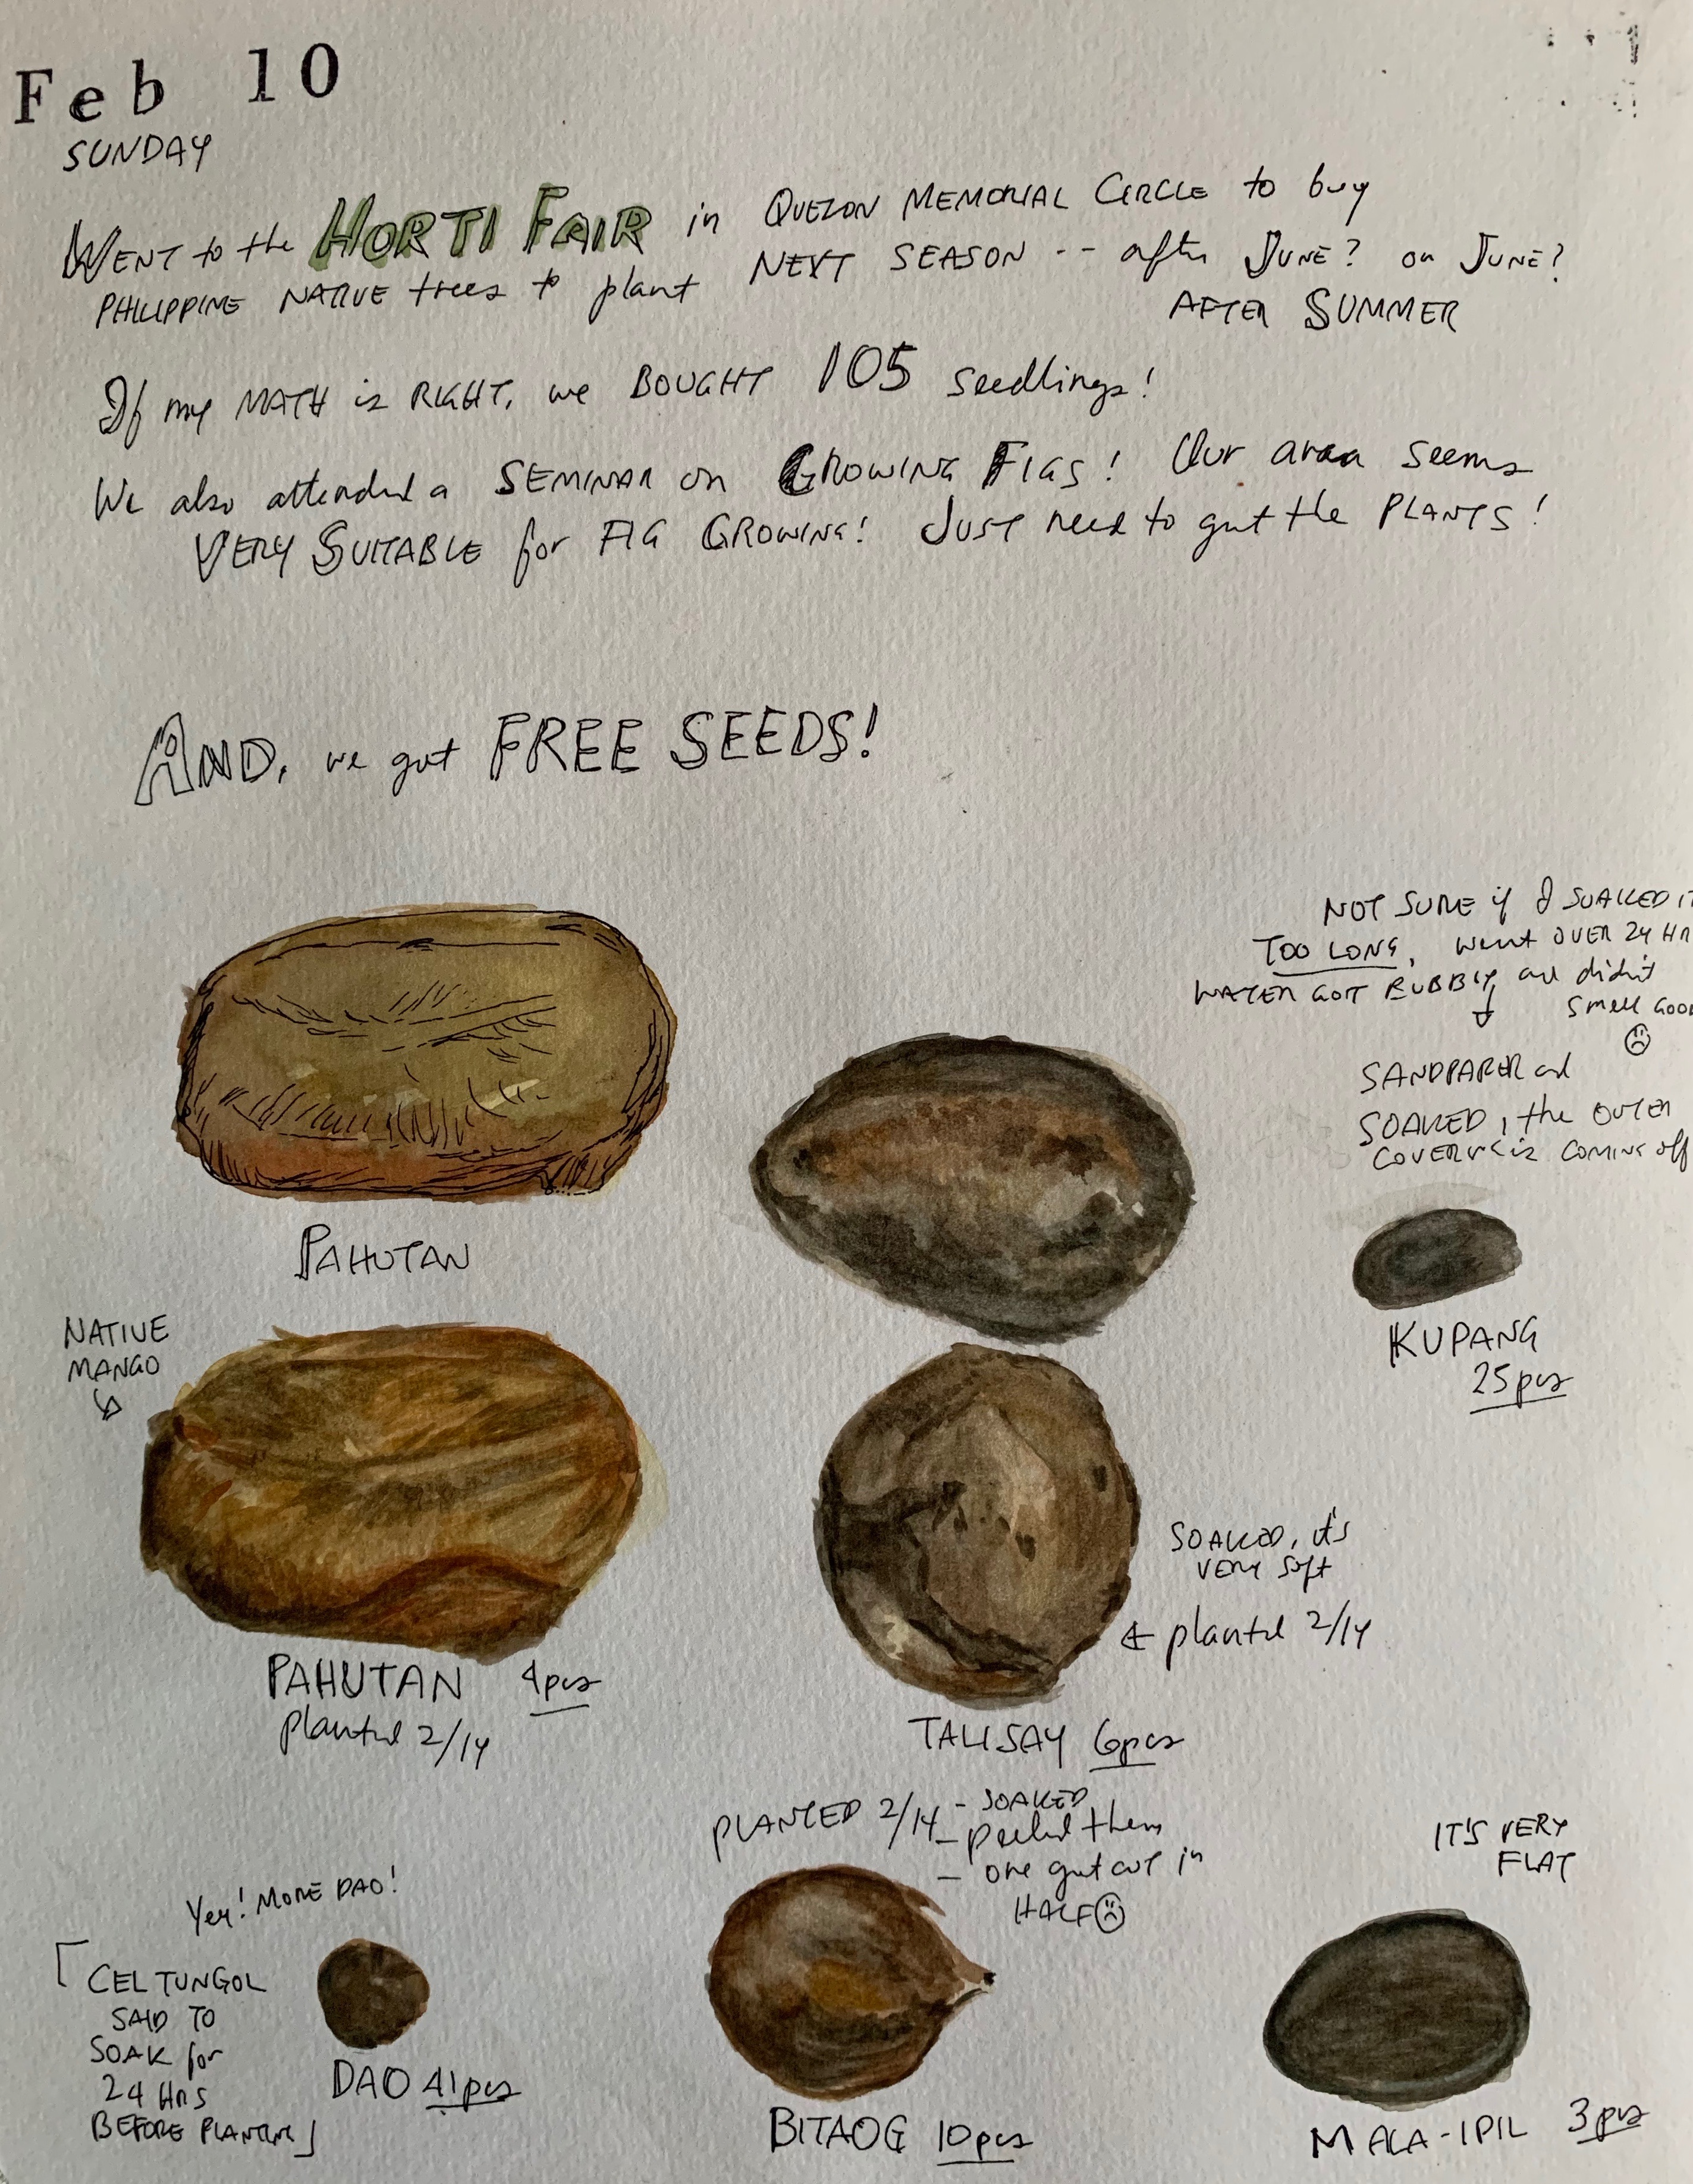 Feb 10
SUNDAY
WENT to the HORTI FAIR in QUEZON MEMORIAL CIRCLE to buy
PHILIPPINE NATIVE trees to plant NEXT SEASON -- after JUNE? or JUNE?
AFTER SUMMER
If my MATH is RIGHT, we BOUGHT 105 seedlings!
We also attended a SEMINAR on GROWING FIGS! Our area seems
VERY SUITABLE for FIG GROWING! JUST need to get the PLANTS!
AND, we got FREE SEEDS!
NOT SURE if I SOAKED IT
TOO LONG, went OVER 24 HR
WATER GOT BUBBLY and didn't
smell GOOD
SANDPAPER and
SOAKED, the OUTER
COVER is COMING off
KUPANG
25pcs
PAHUTAN
NATIVE
MANGO
PAHUTAN 4pcs
planted 2/14
SOAKED, it's
VERY soft
planted 2/14
TALISAY 6pcs
PLANTED 2/14 - SOAKED
- peeled them
- one got cut in
HALF
BITAOG 10pcs
Yey! MORE DAO!
CEL TUNGOL
SAID TO
SOAK for
24 HRS
BEFORE PLANTING
DAO 41pcs
IT'S VERY
FLAT
MALA-IPIL 3pcs